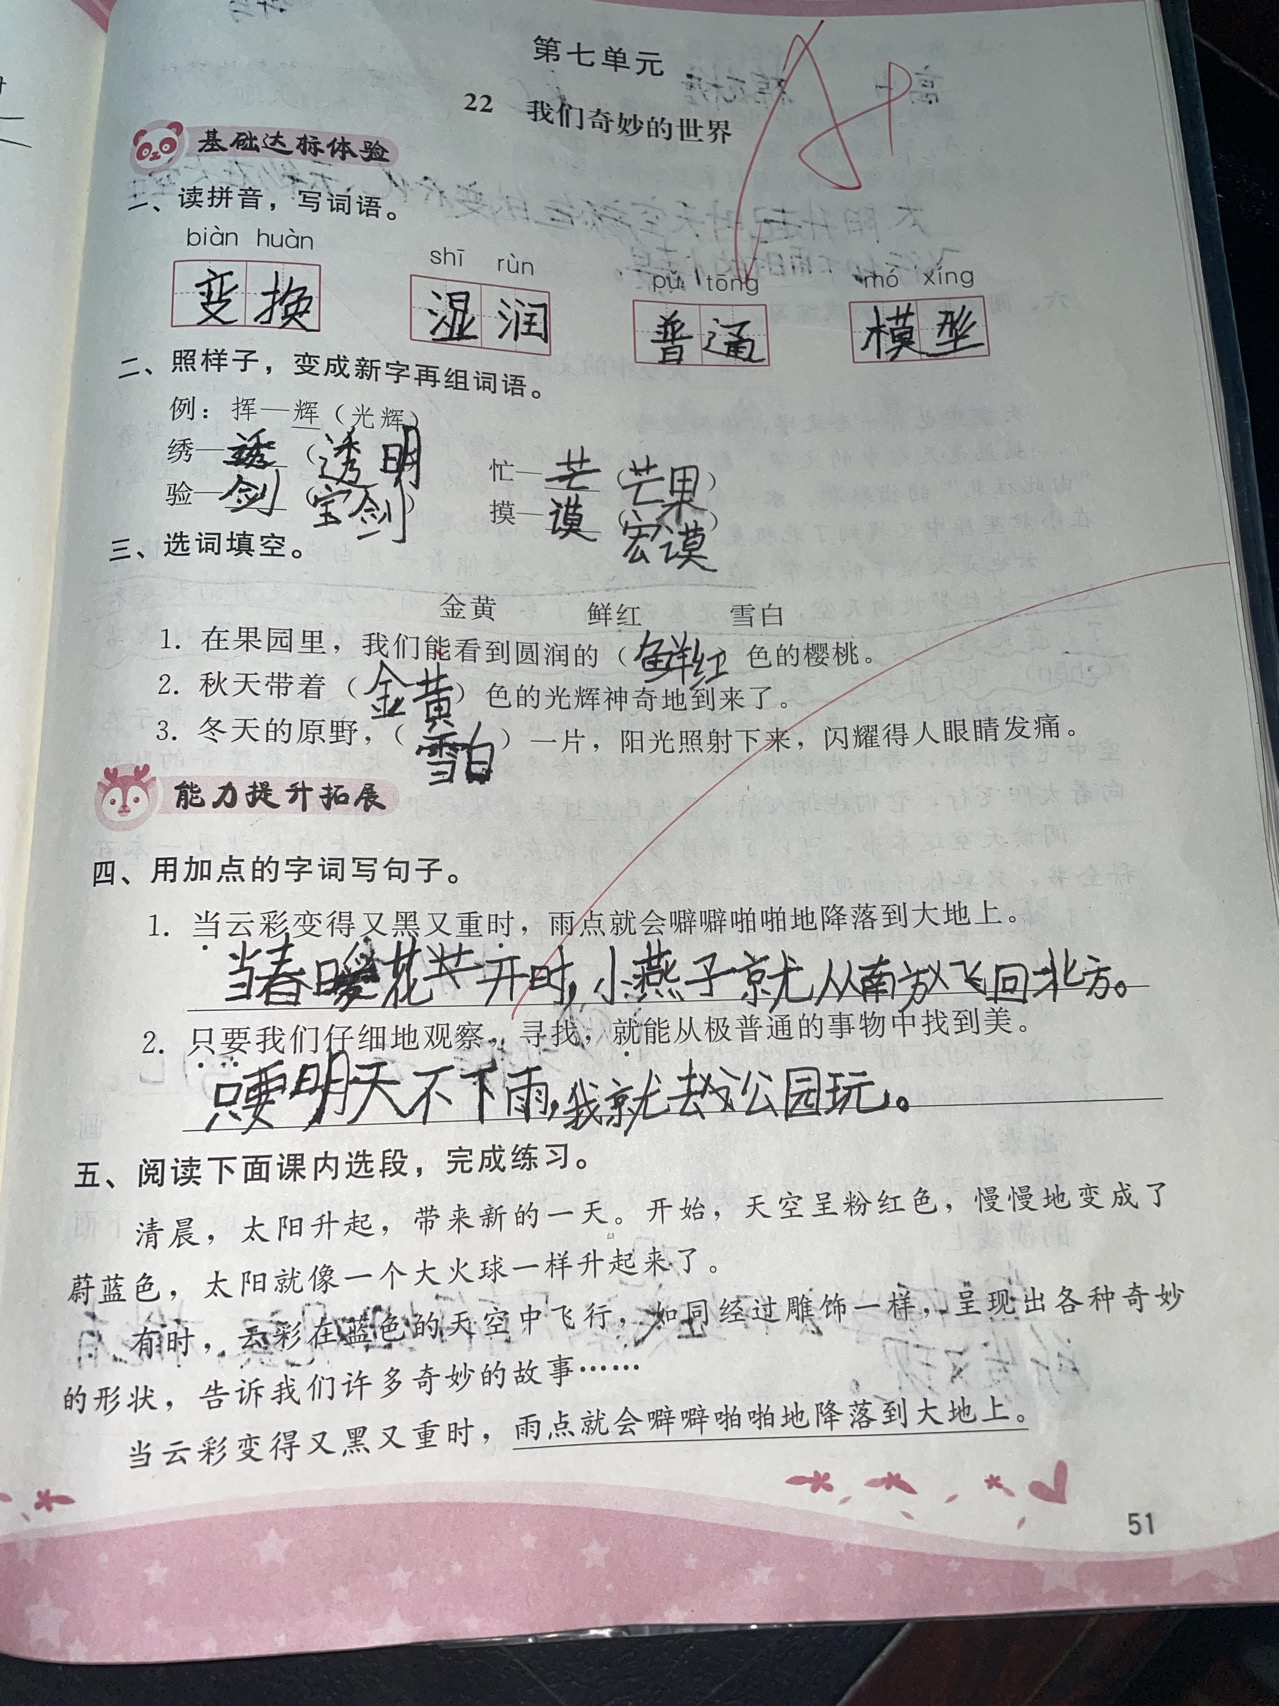 第七单元
22 我们奇妙的世界
A+
基础达标体验
一、读拼音，写词语。
biàn huàn shī rùn pǔ tōng mó xíng
变换 湿润 普通 模型
二、照样子，变成新字再组词语。
例：挥—辉（光辉）
绣—透（透明） 忙—芒（芒果）
验—剑（宝剑） 摸—谟（宏谟）
三、选词填空。
金黄 鲜红 雪白
1. 在果园里，我们能看到圆润的（鲜红 色的樱桃。
2. 秋天带着（金黄）色的光辉神奇地到来了。
3. 冬天的原野，（雪白）一片，阳光照射下来，闪耀得人眼睛发痛。
能力提升拓展
四、用加点的字词写句子。
1. 当云彩变得又黑又重时，雨点就会噼噼啪啪地降落到大地上。
当春日暖花芒开时，小燕子就从南方飞回北方。
2. 只要我们仔细地观察，寻找，就能从极普通的事物中找到美。
只要明天不下雨，我就去公园玩。
五、阅读下面课内选段，完成练习。
清晨，太阳升起，带来新的一天。开始，天空呈粉红色，慢慢地变成了
蔚蓝色，太阳就像一个大火球一样升起来了。
有时，云彩在蓝色的天空中飞行，如同经过雕饰一样，呈现出各种奇妙
的形状，告诉我们许多奇妙的故事……
当云彩变得又黑又重时，雨点就会噼噼啪啪地降落到大地上。
51